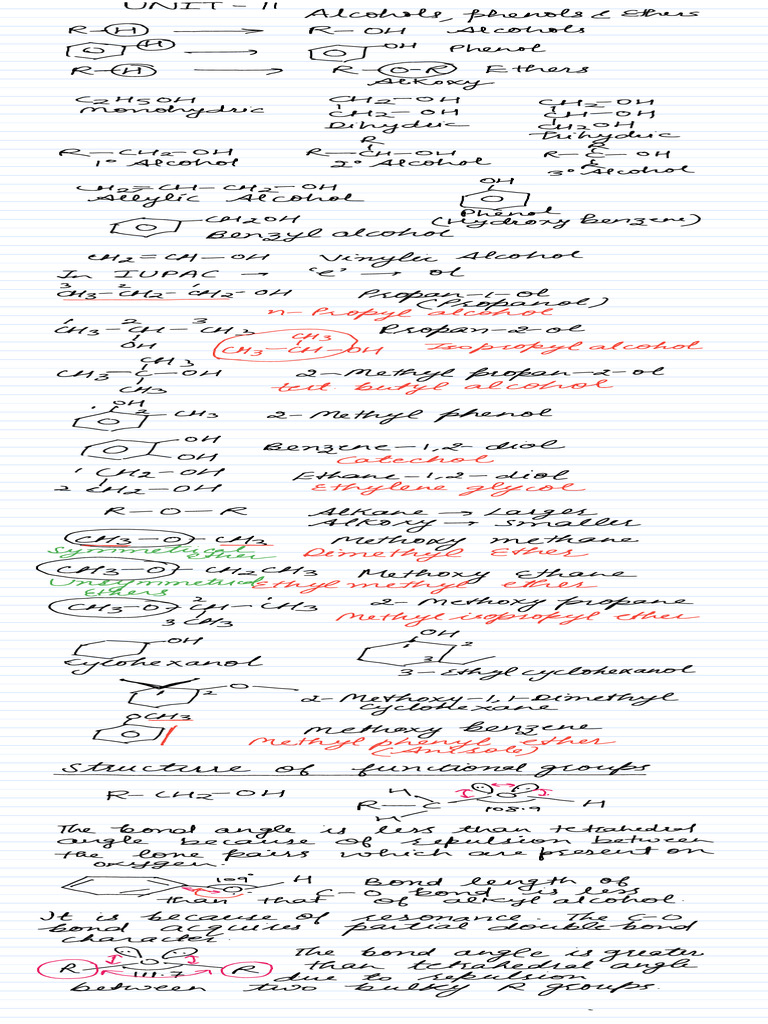 UNIT - 11
Alcohols, phenols & Ethers
R - H → R - OH Alcohols
H → OH Phenol
R - H → R - O - R Ethers
Alkoxy
C2H5OH CH2 - OH CH2 - OH
Monohydric CH2 - OH CH - OH
Dihydric CH2OH
Trihydric
R R
R - CH2 - OH R - CH - OH R - C - OH
1° Alcohol 2° Alcohol R
3° Alcohol
CH2 = CH - CH2 - OH OH
Allylic Alcohol Phenol
CH2OH (Hydroxy benzene)
Benzyl alcohol
CH2 = CH - OH Vinylic Alcohol
In IUPAC → 'e' → ol
3 2 1
CH3 - CH2 - CH2 - OH Propan-1-ol
(Propanol)
n-Propyl alcohol
1 2 3
CH3 - CH - CH3 Propan-2-ol
OH CH3
CH3 - CH - OH Isopropyl alcohol
CH3
CH3 - C - OH 2-Methyl propan-2-ol
CH3 tert. butyl alcohol
OH
2 CH3 2-Methyl phenol
OH
OH Benzene-1,2-diol
Catechol
1 CH2 - OH Ethane-1,2-diol
2 CH2 - OH Ethylene glycol
R - O - R Alkane → Larger
Alkoxy → smaller
CH3 - O - CH3 Methoxy methane
Symmetrical ether Dimethyl Ether
CH3 - O - CH2CH3 Methoxy Ethane
Unsymmetrical Ethers Ethyl methyl ether
CH3 - O - 2CH - 1CH3 2-Methoxy propane
3 CH3 Methyl isopropyl ether
OH OH
1 2
3
Cyclohexanol 3-Ethylcyclohexanol
1 2 O 2-Methoxy-1,1-Dimethyl
Cyclohexane
OCH3 Methoxy benzene
Methyl phenyl ether
(Anisole)
Structure of functional groups
R - CH2 - OH H
R - C O H
H 108.9
The bond angle is less than tetrahedral
angle because of repulsion between
the lone pairs which are present on
oxygen.
109° O H Bond length of
C-O bond is less
than that of alkyl alcohol.
It is because of resonance. The C-O
bond acquires partial double bond
character.
R O R The bond angle is greater
111.7 than tetrahedral angle
due to repulsion
between two bulky R groups.